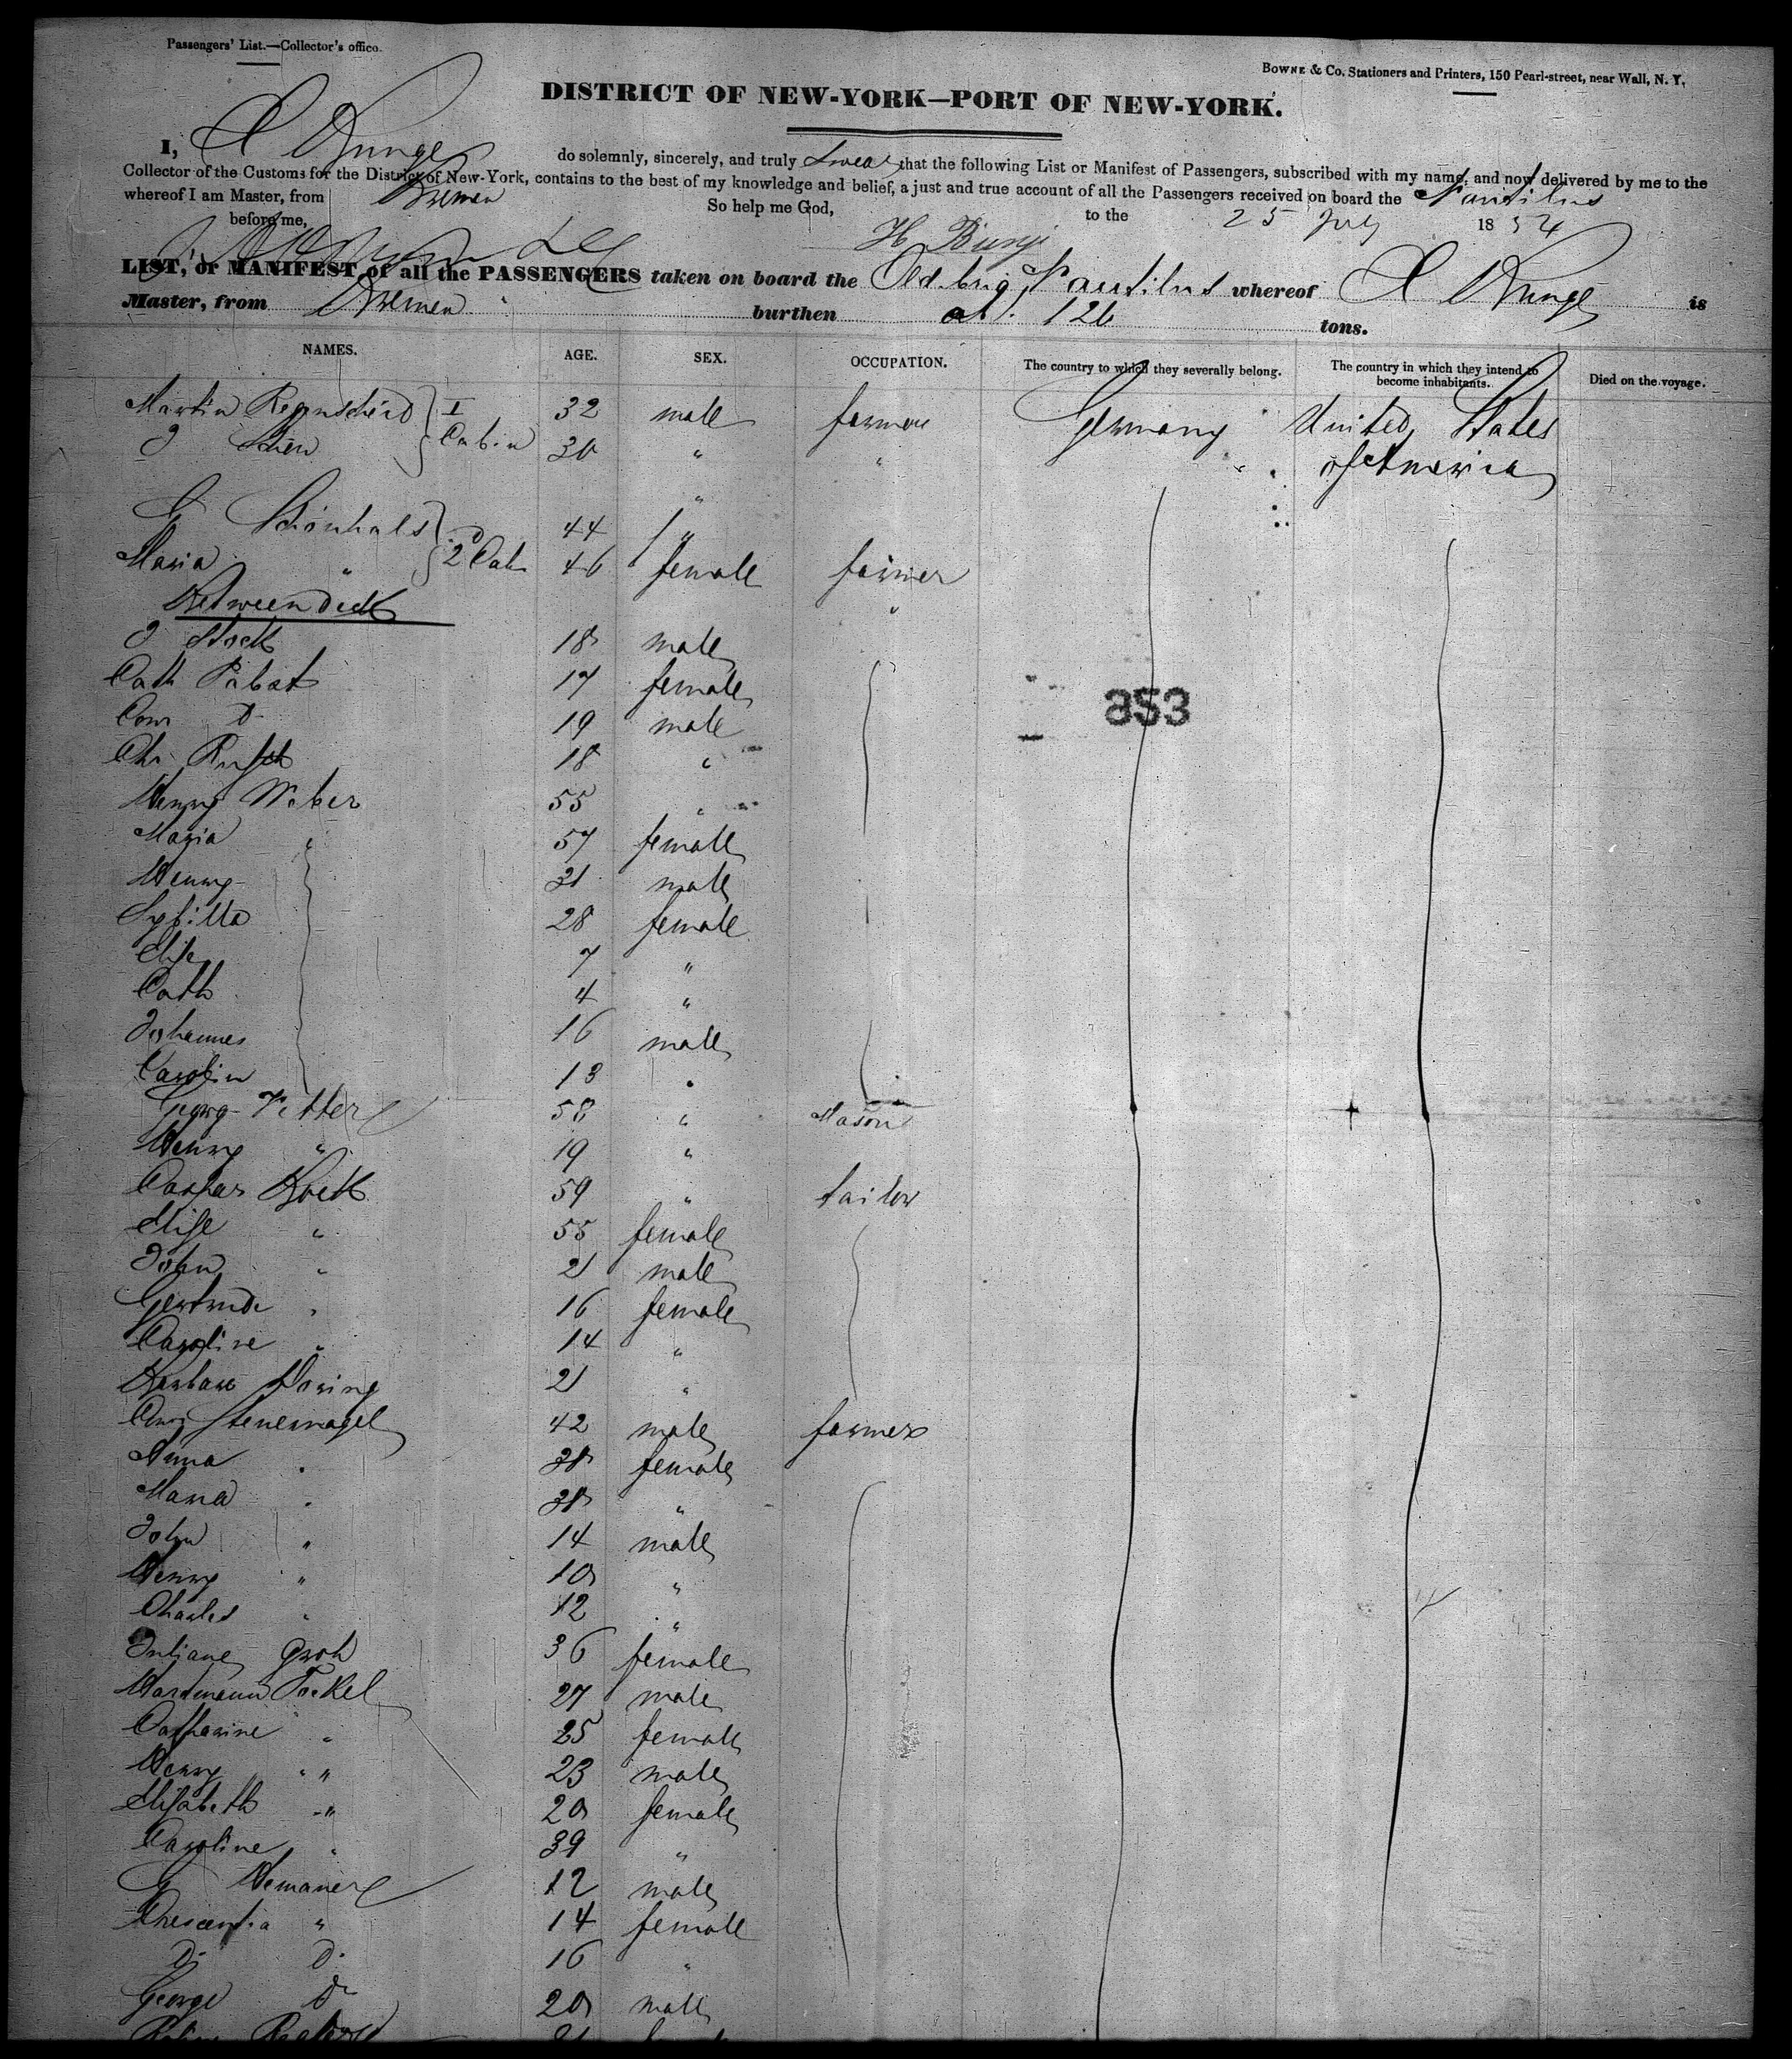 Passengers' List.—Collector's office.
BOWNE & Co. Stationers and Printers, 150 Pearl-street, near Wall, N. Y.
DISTRICT OF NEW-YORK—PORT OF NEW-YORK.
I, do solemnly, sincerely, and truly swear that the following List or Manifest of Passengers, subscribed with my name, and now delivered by me to the
Collector of the Customs for the District of New-York, contains to the best of my knowledge and belief, a just and true account of all the Passengers received on board the Nautilus
whereof I am Master, from Bremen
So help me God,
to the 25 July 1854
before me,
LIST, or MANIFEST of all the PASSENGERS taken on board the Old. brig Nautilus whereof is
Master, from Bremen burthen 126 tons.
NAMES. AGE. SEX. OCCUPATION. The country to which they severally belong. The country in which they intend to become inhabitants. Died on the voyage.
Martin I Cabin 32 male farmer Germany United States
30 " " of America
G Schönhals 2 Cab 44 "
Maria " 46 female farmer
Between deck "
J 18 male
Cath Pabst 17 female
D 19 male
Chr 18 "
853
Henry Weber 55 "
Maria " 57 female
Henry 31 male
Sybilla 28 female
Elise 7 "
Cath 4 "
Johannes 16 male
Carolin 13 "
Georg Vetter 58 " Mason
Henry " 19 "
Caspar 59 " tailor
Elise " 55 female
John " 21 male
Gertrude " 16 female
Caroline " 14 "
Barbara Döring 21 "
Steuernagel 42 male farmer
Anna " 38 female
Maria " 38 "
John " 14 male
Henry " 10 "
Charles " 12 "
Juliane Groh 36 female
Hartmann Jockel 27 male
Catharine " 25 female
Henry " 23 male
Elisabeth " 20 female
Caroline " 39 "
G 12 male
Crescentia " 14 female
D D 16 "
George D 20 male